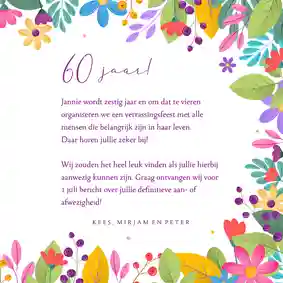 60 jaar!
Jannie wordt zestig jaar en om dat te vieren
organiseren we een verrassingsfeest met alle
mensen die belangrijk zijn in haar leven.
Daar horen jullie zeker bij!
Wij zouden het heel leuk vinden als jullie hierbij
aanwezig kunnen zijn. Graag ontvangen wij voor
1 juli bericht over jullie definitieve aan- of
afwezigheid!
KEES, MIRJAM EN PETER